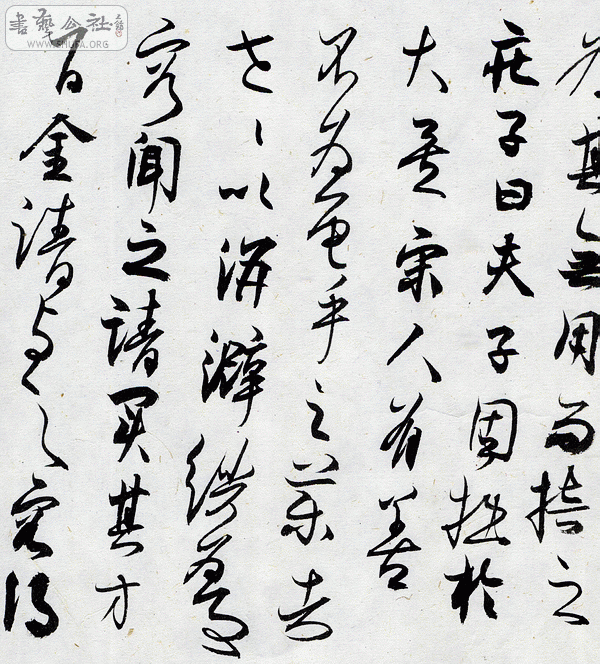 為其無用而掊之
莊子曰夫子固拙於
大矣宋人有善
不為龜手之藥者
世〻以洴澼絖為事
客聞之請買其方
百金請與之客得
書藝公社
WWW.SHUSA.ORG